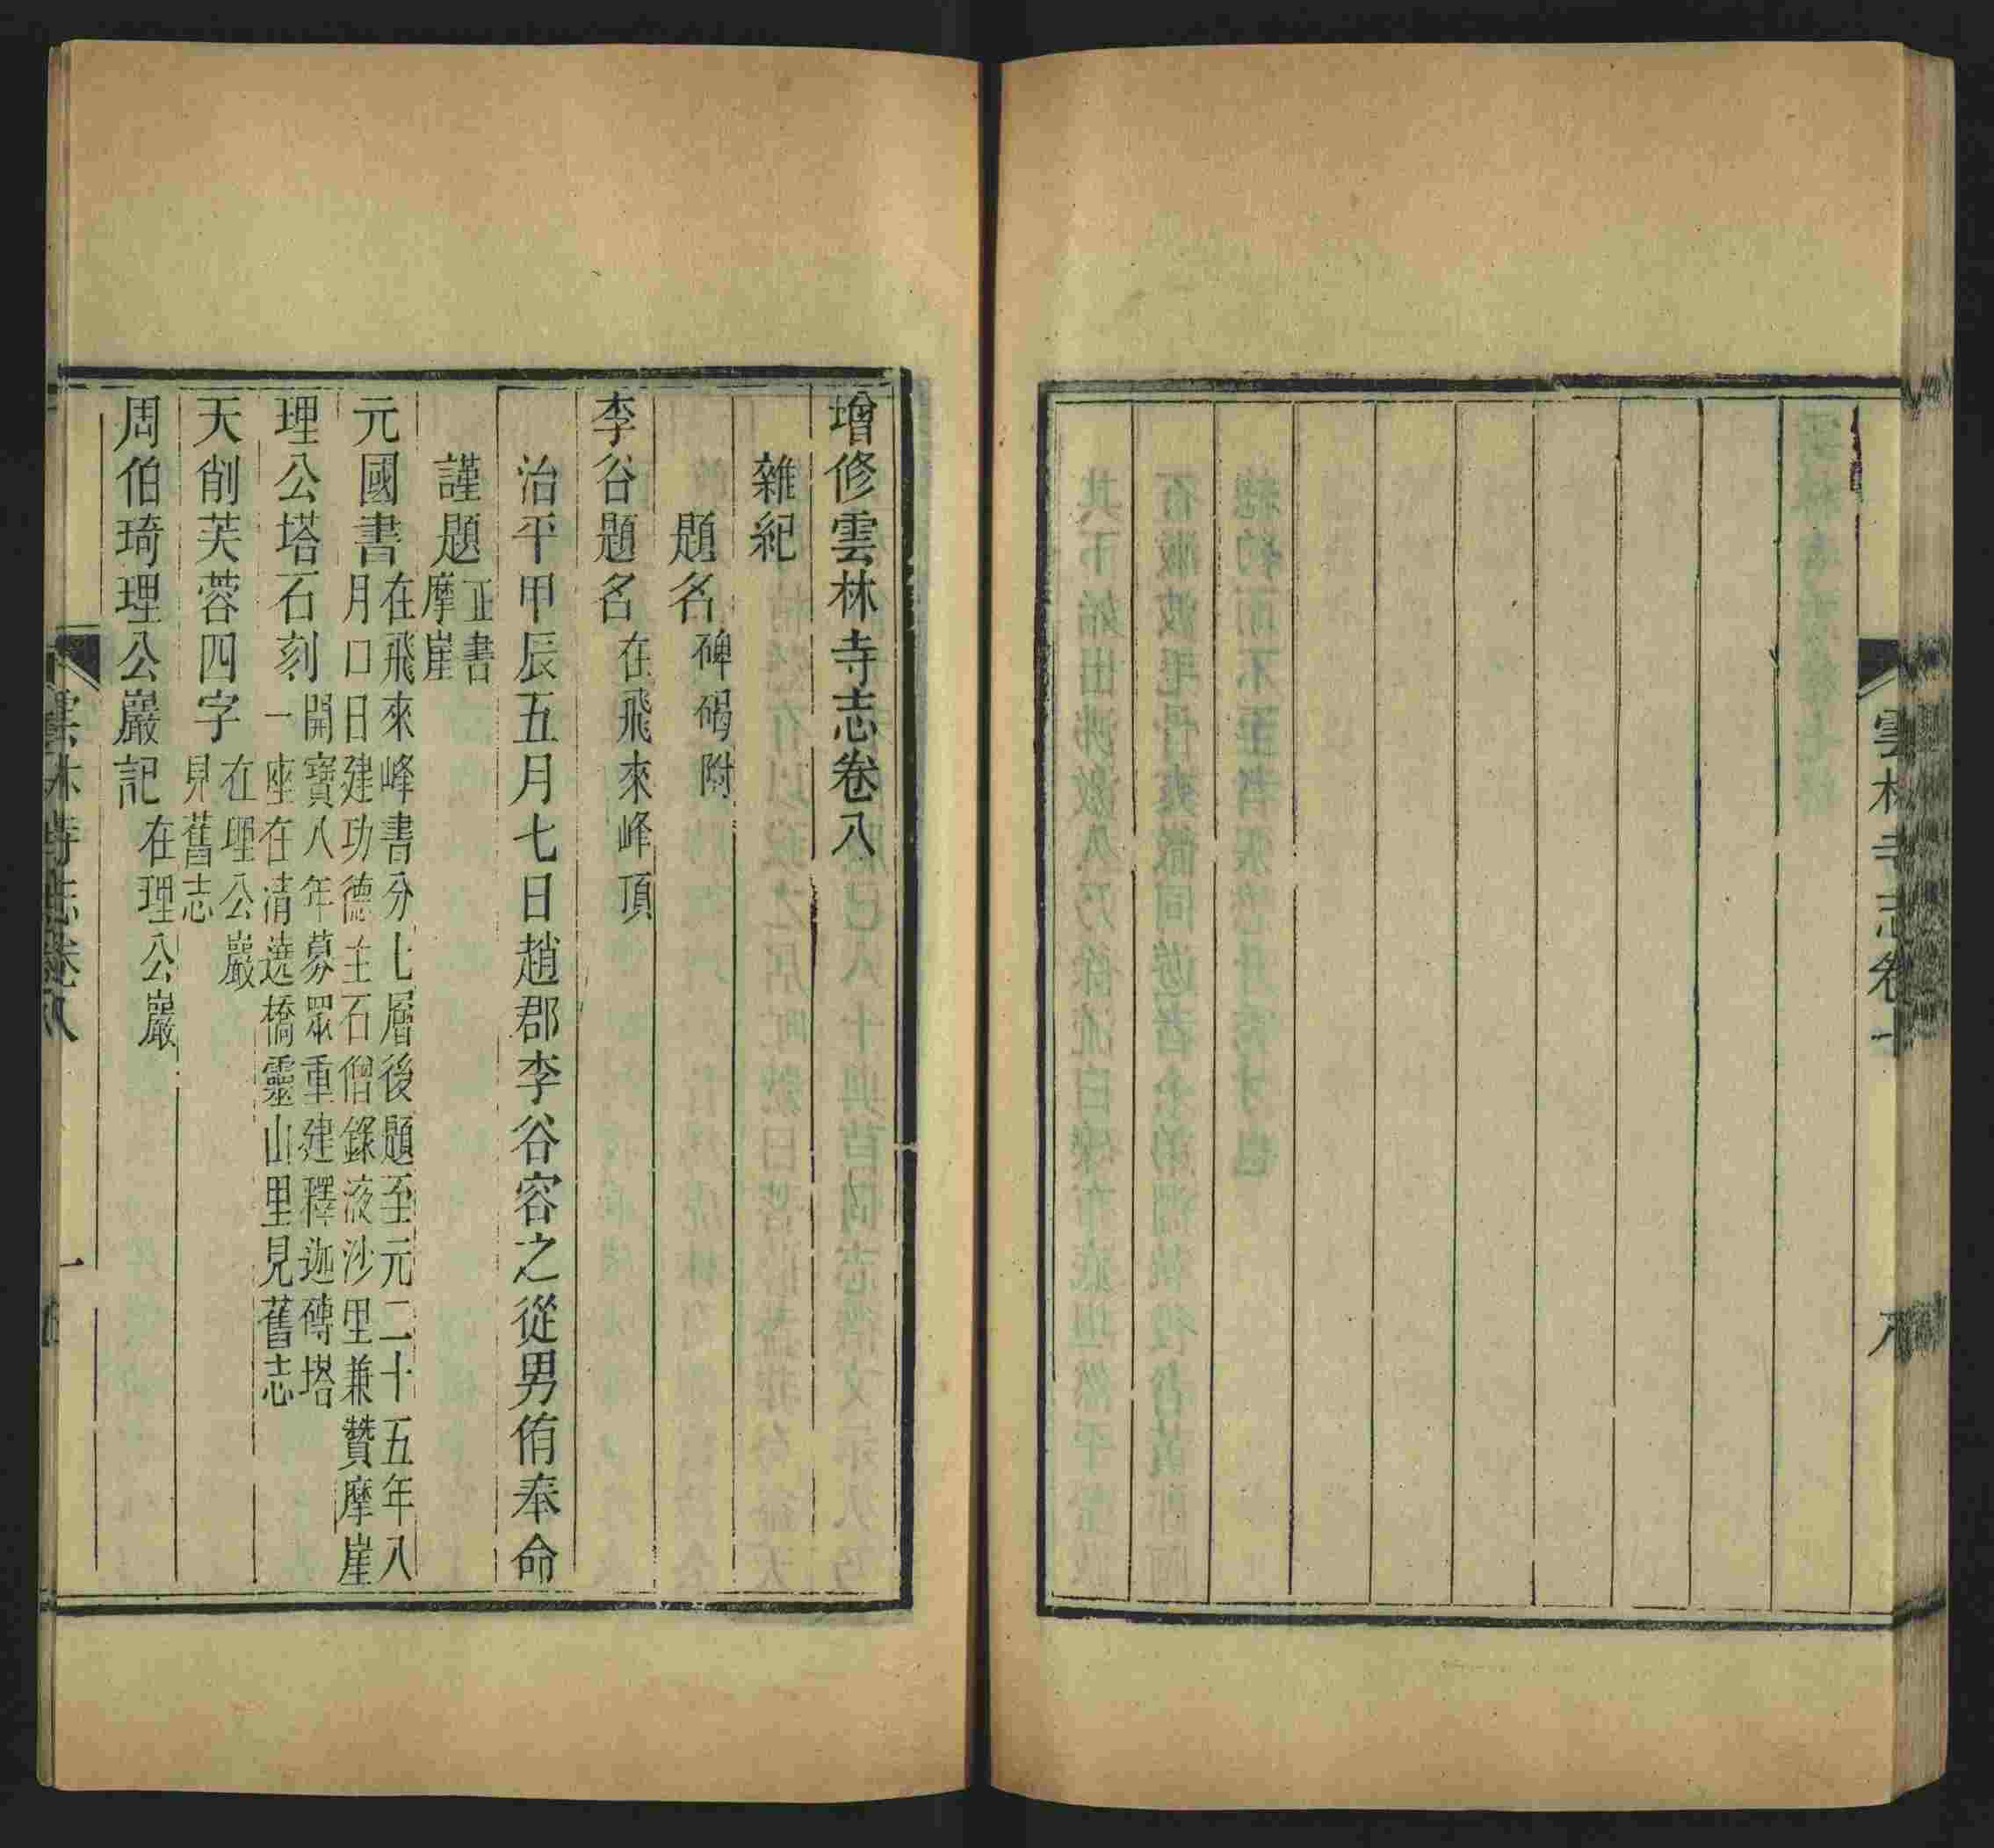 增修雲林寺志卷八
雜紀
題名 碑碣附
李谷題名 在飛來峰頂
治平甲辰五月七日趙郡李谷容之從男侑奉命
謹題 正書
摩崖
元國書 在飛來峰書分七層後題至元二十五年八
月口日建功德主石僧錄液沙里兼贊摩崖
理公塔石刻 開寶八年募眾重建釋迦磚塔
一座在清遶橋靈山里見舊志
天削芙蓉四字 在理公巖
見舊志
周伯琦理公巖記 在理公巖
雲林寺志卷八
一
雲林寺志卷七